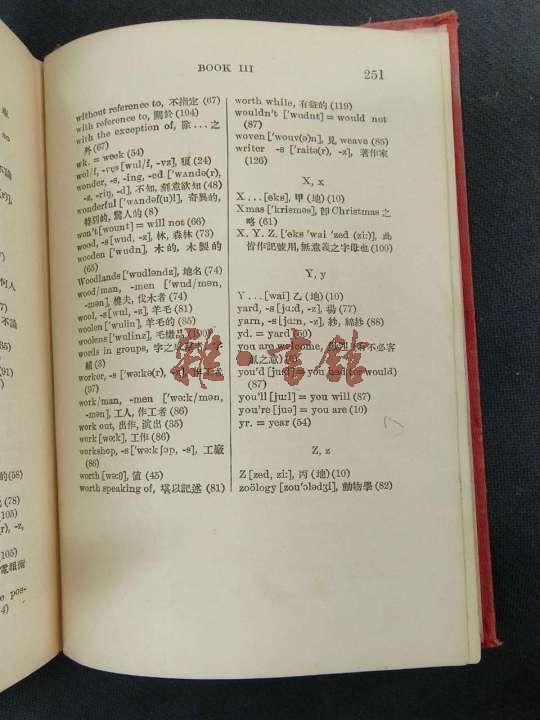 BOOK III
251
without reference to, 不指定 (67)
with reference to, 關於 (104)
with the exception of, 除...之
外 (67)
wk. = week (54)
wolf/f, -ves [wulf, -vz], 狼 (24)
wonder, -s, -ing, -ed ['wʌndə(r),
-z, -riŋ, -d], 不知, 刻意欲知 (48)
wonderful ['wʌndəf(u)l], 奇異的,
特別的, 驚人的 (8)
won't [wount] = will not (66)
wood, -s [wud, -z], 林, 森林 (73)
wooden ['wudn], 木的, 木製的
(65)
Woodlands ['wudləndz], 地名 (74)
wood/man, -men ['wud/mən,
-mən], 樵夫, 伐木者 (74)
wool, -s [wul, -z], 羊毛 (81)
woolen ['wulin], 羊毛的 (85)
woolens ['wulinz], 毛織品
words in groups, 字之
組 (3)
worker, -s ['wə:kə(r), -z], 作工者
(97)
work/man, -men ['wə:k/mən,
-mən], 工人, 作工者 (86)
work out, 出作, 演出 (35)
work [wə:k], 工作 (86)
workshop, -s ['wə:kʃɔp, -s], 工廠
(86)
worth [wə:θ], 值 (45)
worth speaking of, 堪以記述 (81)
worth while, 有益的 (119)
wouldn't ['wudnt] = would not
(87)
woven ['wouv(ə)n], 見 weave (85)
writer -s ['raitə(r), -z], 著作家
(126)
X, x
X... [eks], 甲 (地) (10)
Xmas ['krisməs], 卽 Christmas 之
略 (61)
X. Y. Z. ['eks 'wai 'zed (zi:)], 此
皆作記號用, 無意義之字母也 (100)
Y, y
Y... [wai] 乙 (地) (10)
yard, -s [jɑ:d, -z], 碼 (77)
yarn, -s [jɑ:n, -z], 紗, 綿紗 (88)
yd. = yard (60)
you are welcome, 不必客
氣之意)
you'd [ju:d] = you had (or would)
(87)
you'll [ju:l] = you will (87)
you're [juə] = you are (10)
yr. = year (54)
Z, z
Z [zed, zi:], 丙 (地) (10)
zoölogy [zou'ɔlədʒi], 動物學 (82)